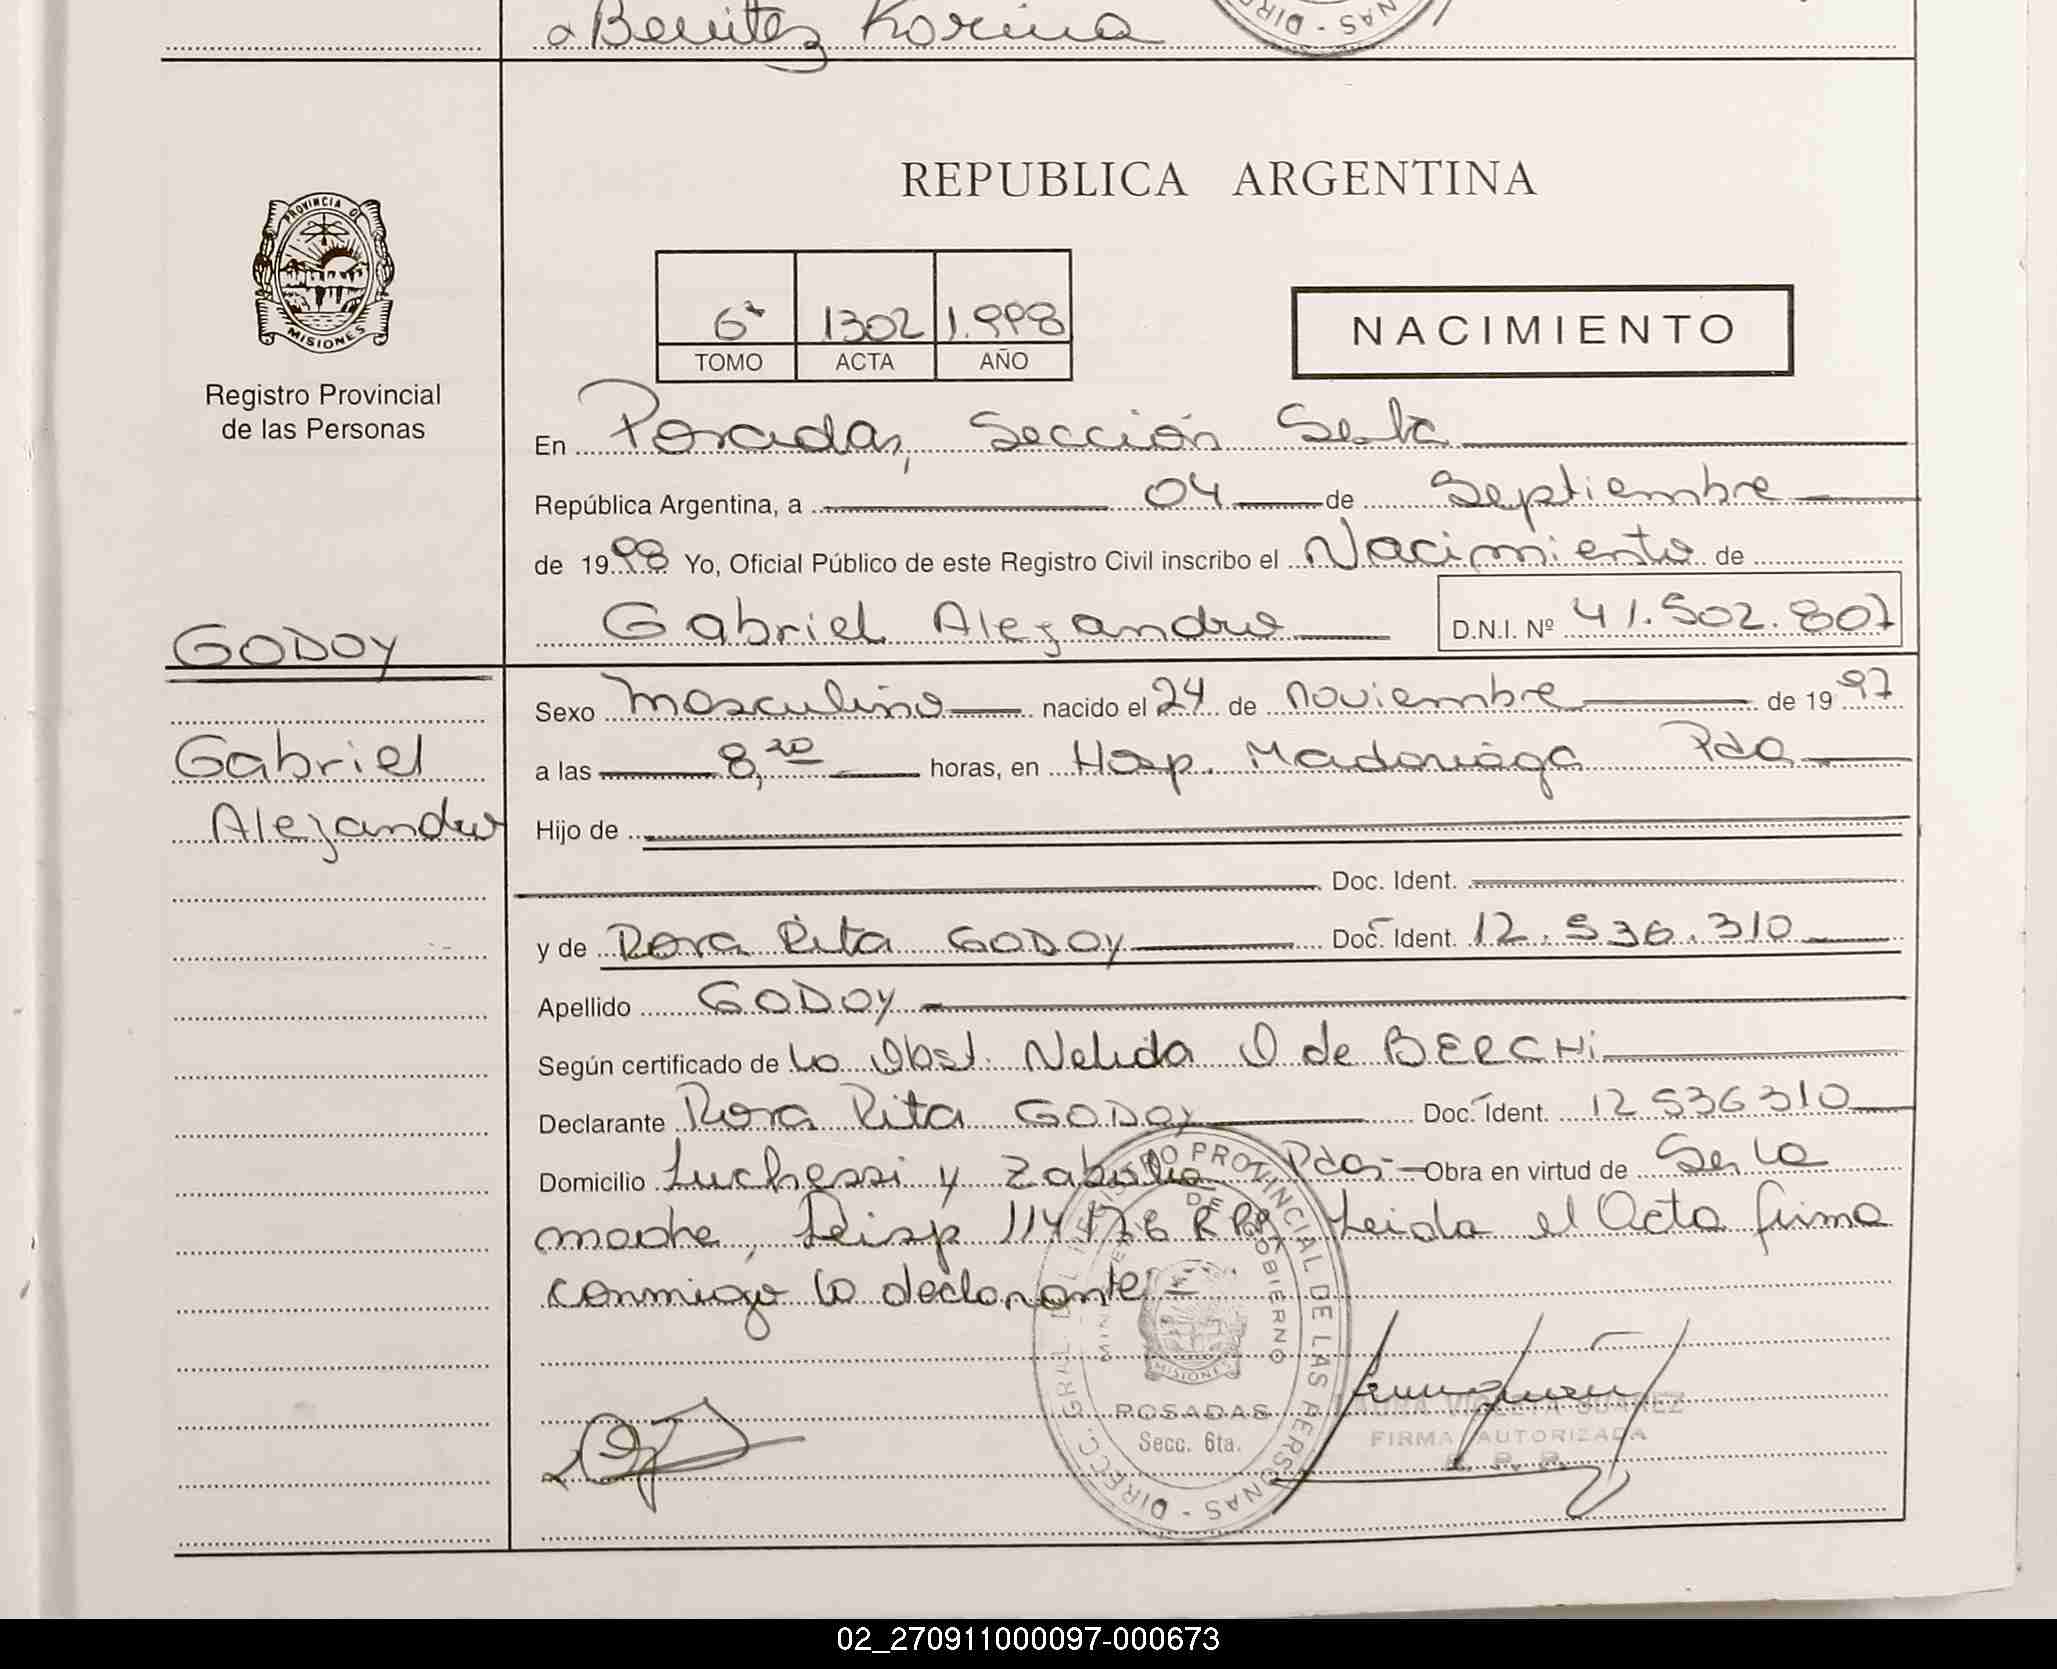 Benitez Korina
REPUBLICA ARGENTINA
PROVINCIA DE
MISIONES
Registro Provincial
de las Personas
6ª 1302 1.998
TOMO ACTA AÑO
NACIMIENTO
En Posadas, Sección Sexta
República Argentina, a 04 de Septiembre
de 1998 Yo, Oficial Público de este Registro Civil inscribo el Nacimiento de
Gabriel Alejandro D.N.I. Nº 41.502.807
GODOY
Gabriel
Alejandro
Sexo masculino nacido el 24 de noviembre de 1997
a las 8,20 horas, en Hosp. Madariaga Pdas
Hijo de
Doc. Ident.
y de Rosa Rita GODOY Doc. Ident. 12.536.310
Apellido GODOY
Según certificado de la Obst. Nelida O de BERCHi
Declarante Rosa Rita GODOY Doc. Ident. 12536310
Domicilio Luchessi y Pdas- Obra en virtud de Ser la
madre, Leida el Acta firma
conmigo la declarante=
DIRECC. GRAL DEL REGISTRO PROVINCIAL DE LAS PERSONAS
DE GOBIERNO
MISIONES
POSADAS
Secc. 6ta.
VIOLETA SUAREZ
FIRMA AUTORIZADA
R. P. P.
02_270911000097-000673